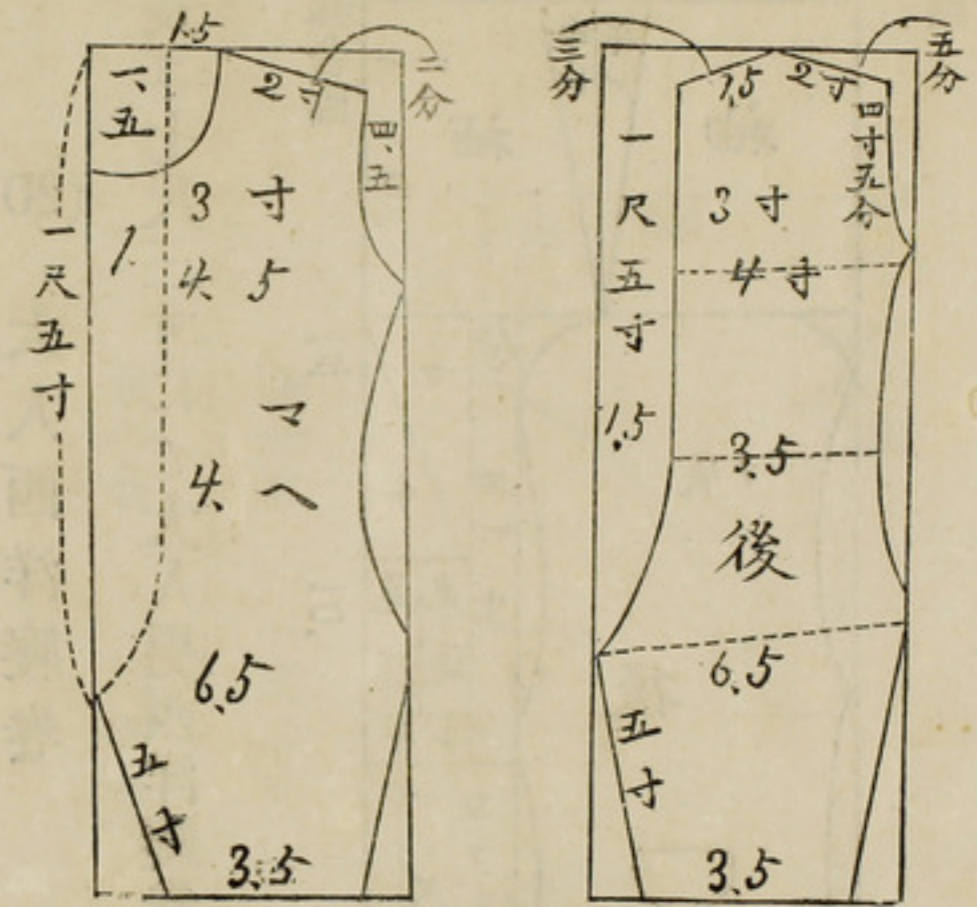 1.5
二分
一、五
2寸
四、五
一尺五寸
1.
3寸
4.5
マヘ
4.
6.5
五寸
3.5
三分
五分
1.5
2寸
四寸五分
一尺五寸
3寸
4寸
1.5
3.5
後
6.5
五寸
3.5